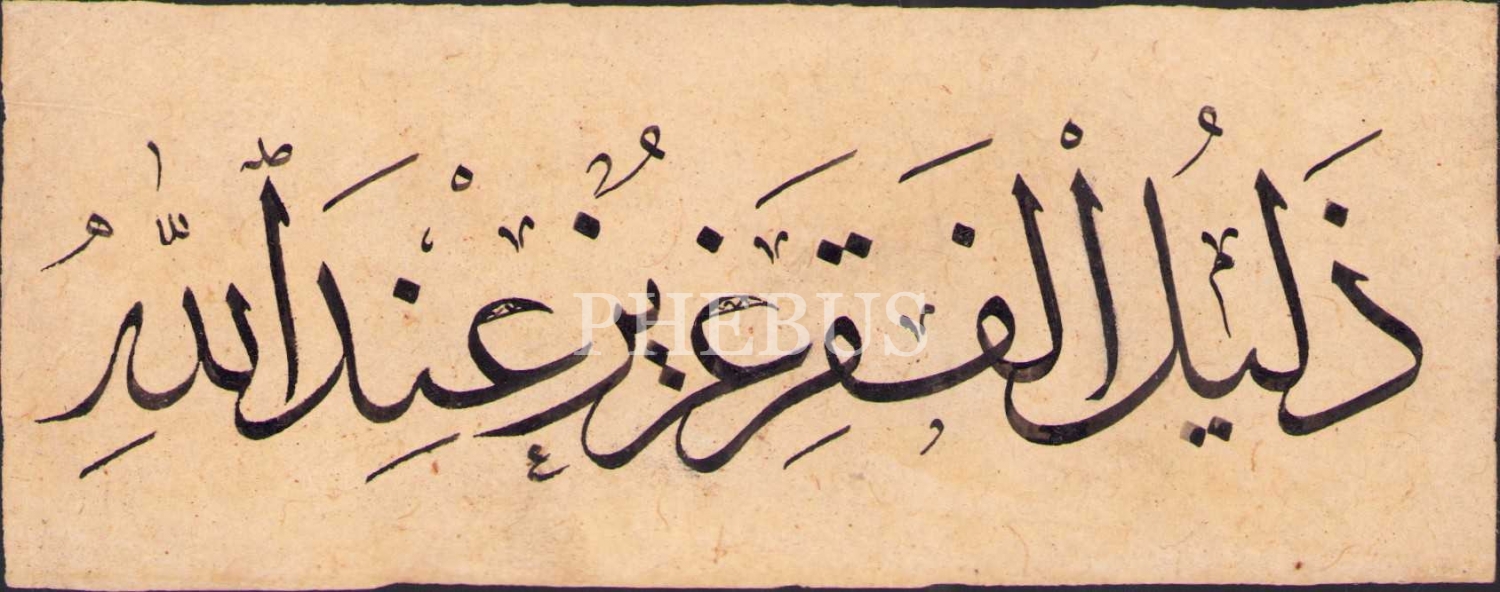 ذَلیلُ الْفَقرِ عَزیزٌ عِنْدَ اللّٰهِ
PHEBUS